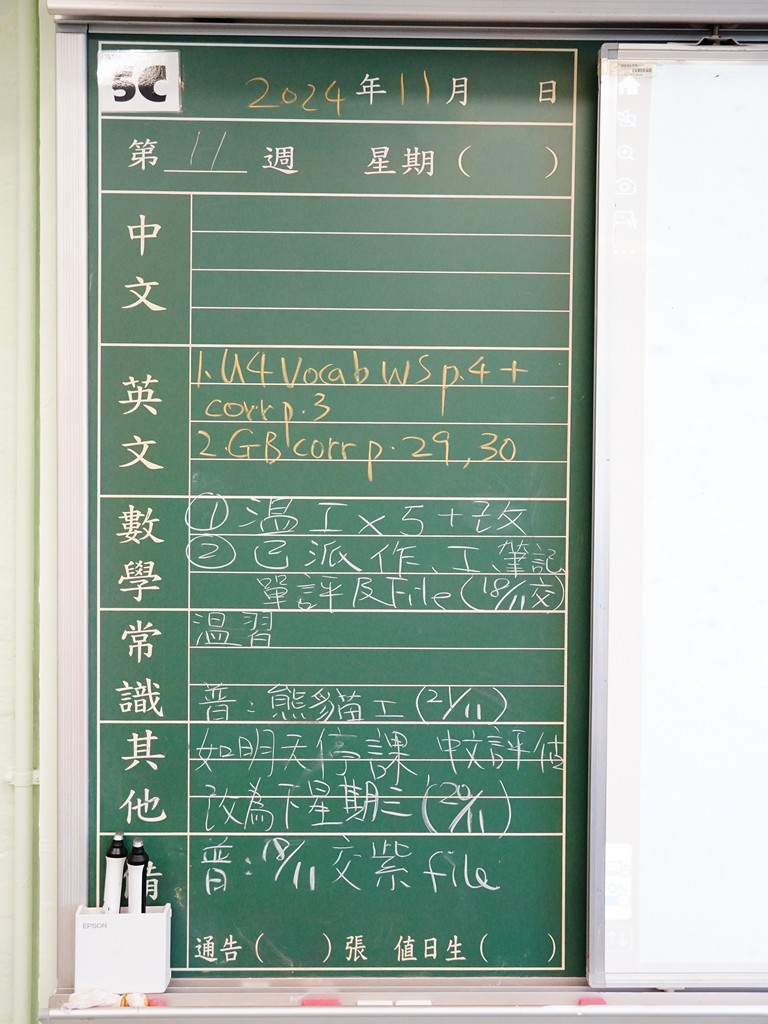 5C 2024年11月 日
第 11 週 星期( )
中文
英文
1. U4 Vocab WS p.4 +
corr p.3
2. GB corr p. 29, 30
數學
① 溫工 x 5 + 改
② 已派作、工、筆記
單評及File (18/11交)
常識
溫習
普：熊貓工 (21/11)
其他
如明天停課，中文評估
改為下星期三 (20/11)
備
普：18/11 交紫 file
通告( )張 值日生( )
EPSON